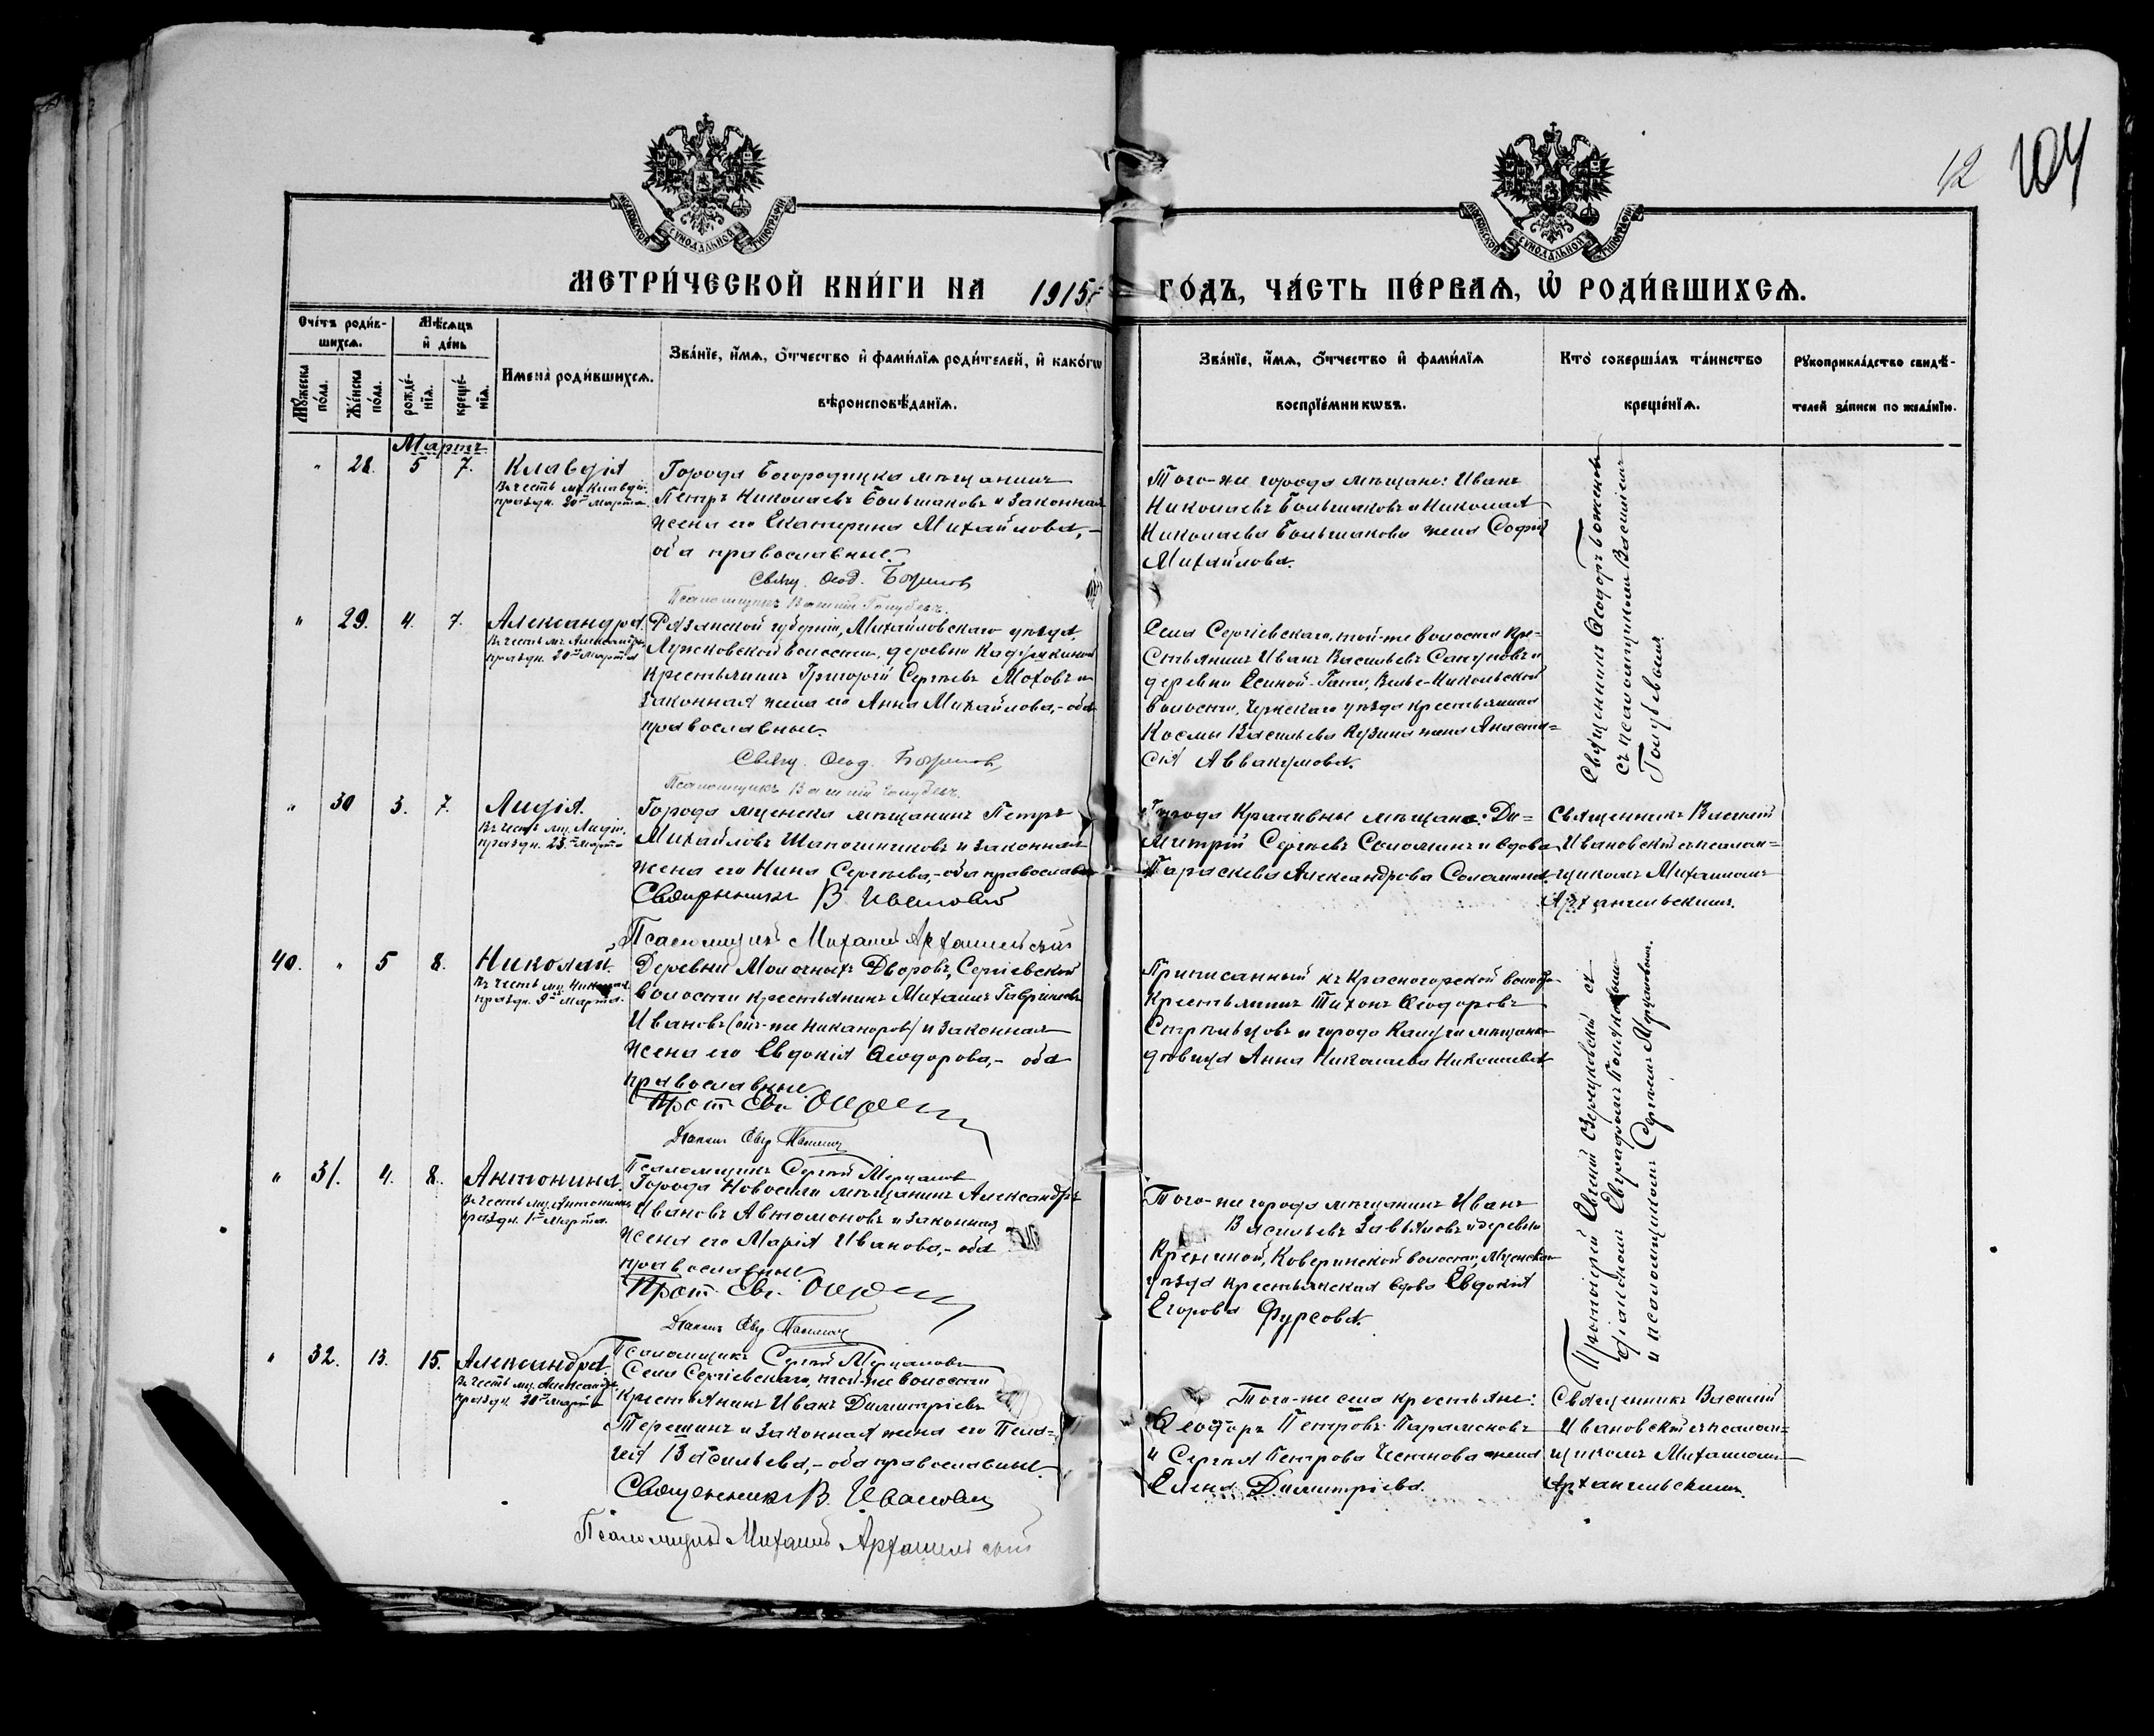 12 104
МОСКОВСКОЙ СѴНОДАЛЬНОЙ ТИПОГРАФІИ
МОСКОВСКОЙ СѴНОДАЛЬНОЙ ТИПОГРАФІИ
МЕТРИ́ЧЕСКОЙ КНИ́ГИ НА 1915 г. ГО́ДЪ, ЧА́СТЬ ПЕ́РВАѦ, Ѡ҆ РОДИ́ВШИХСѦ.
Сче́тъ роди́в-
шихсѧ.
Мѣ́сѧцъ
и҆ де́нь
Мꙋ́жеска по́ла.
Же́нска по́ла.
рожде́-
нїѧ.
креще́-
нїѧ.
Имена̀ роди́вшихсѧ.
Зва́нїе, и҆́мѧ, ѻ҆́тчество и҆ фами́лїѧ роди́телей, и҆ како́гѡ
вѣроисповѣ́данїѧ.
Зва́нїе, и҆́мѧ, ѻ҆́тчество и҆ фами́лїѧ
воспрїе́мникѡвъ.
Кто̀ соверша́лъ та́инство
креще́нїѧ.
Рꙋкоприкла́дство свидѣ́-
телей за́писи по жела́нїю.
Мартъ
" 28. 5 7. Клавдія
Въ честь мц. Клавдіи
праздн. 20го Марта.
Города Богородицка мѣщанинъ
Петръ Николаевъ Большаковъ и законная
жена его Екатерина Михайлова,-
оба православные.
Свящ. Ѳеод. Боженовъ
Псаломщикъ Василій Голубевъ.
Того-же города мѣщане: Иванъ
Николаевъ Большаковъ и Николая
Николаева Большакова жена Софія
Михайлова.
Священникъ Ѳеодоръ Боженовъ
съ псаломщикомъ Василіемъ
Голубевымъ
" 29. 4. 7. Александра.
Въ честь мц. Александры
праздн. 20го Марта
Рязанской губерніи, Михайловскаго уѣзда,
волости, деревни
Крестьянинъ Григорій Сергѣевъ Моховъ и
законная жена его Анна Михайлова,-оба
православные.
Свящ. Ѳеод. Боженовъ,
Псаломщикъ Василій Голубевъ.
Села Сергіевскаго, той-же волости кре-
стьянинъ Иванъ Васильевъ Сапуновъ и
деревни
волости, уѣзда крестьянина
Космы Васильева Кузина жена Анаста-
сія Аввакумова.
" 30 3. 7. Лидія.
Въ честь мц. Лидіи,
праздн. 23го Марта
Города Мценска мѣщанинъ Петръ
Михайловъ Шапочниковъ и законная
жена его Нина Сергѣева,-оба православные
Священникъ В. Ивановскій
Псаломщикъ Михаилъ Архангельскій
Города Крапивны мѣщане: Ди-
митрій Сергѣевъ Соломинъ и вдова
Параскева Александрова Соломина.
Священникъ Василій
Ивановскій съ псалом-
щикомъ Михаиломъ
Архангельскимъ.
40. " 5 8. Николай.
Въ честь мц. Николая
праздн. 9го Марта.
Деревни Молочныхъ Дворовъ, Сергіевской
волости крестьянинъ Михаилъ Гавріиловъ
Ивановъ (онъ-же Никаноровъ) и законная
жена его Евдокія Ѳеодорова,- оба
православные.
Прот. Евг.
Діаконъ Евгр.
Псаломщикъ Сергій Мерцаловъ
Приписанный къ Красногорской волости
крестьянинъ Тихонъ Ѳеодоровъ
Стрѣльцовъ и города Калуги мѣщанка
дѣвица Анна Николаева Николаева
Протоіерей Евгеній Озерецковскій съ
діакономъ Евграфомъ
и псаломщикомъ Сергіемъ Мерцаловымъ.
" 31. 4. 8. Антонина.
Въ честь мц. Антонины
праздн. 1го Марта.
Города Новосиля мѣщанинъ Александръ
Ивановъ Автомоновъ и законная
жена его Марія Иванова,-оба
православные.
Прот. Евг.
Діаконъ Евгр.
Псаломщикъ Сергій Мерцаловъ
Того-же города мѣщанинъ Иванъ
Васильевъ Завьяловъ и деревни
волости, Мценскаго
уѣзда крестьянская вдова Евдокія
Егорова Фурсова.
" 32. 13. 15. Александра
Въ честь мц. Александры
праздн. 20го Марта
Села Сергіевскаго, той-же волости
крестьянинъ Иванъ Димитріевъ
Терешинъ и законная жена его Пела-
гея Васильева,-оба православные.
Священникъ В. Ивановскій
Псаломщикъ Михаилъ Архангельскій
Того-же села крестьяне:
Ѳеодоръ Петровъ Парамоновъ
и Сергѣя Петрова жена
Елена Димитріева.
Священникъ Василій
Ивановскій съ псалом-
щикомъ Михаиломъ
Архангельскимъ.